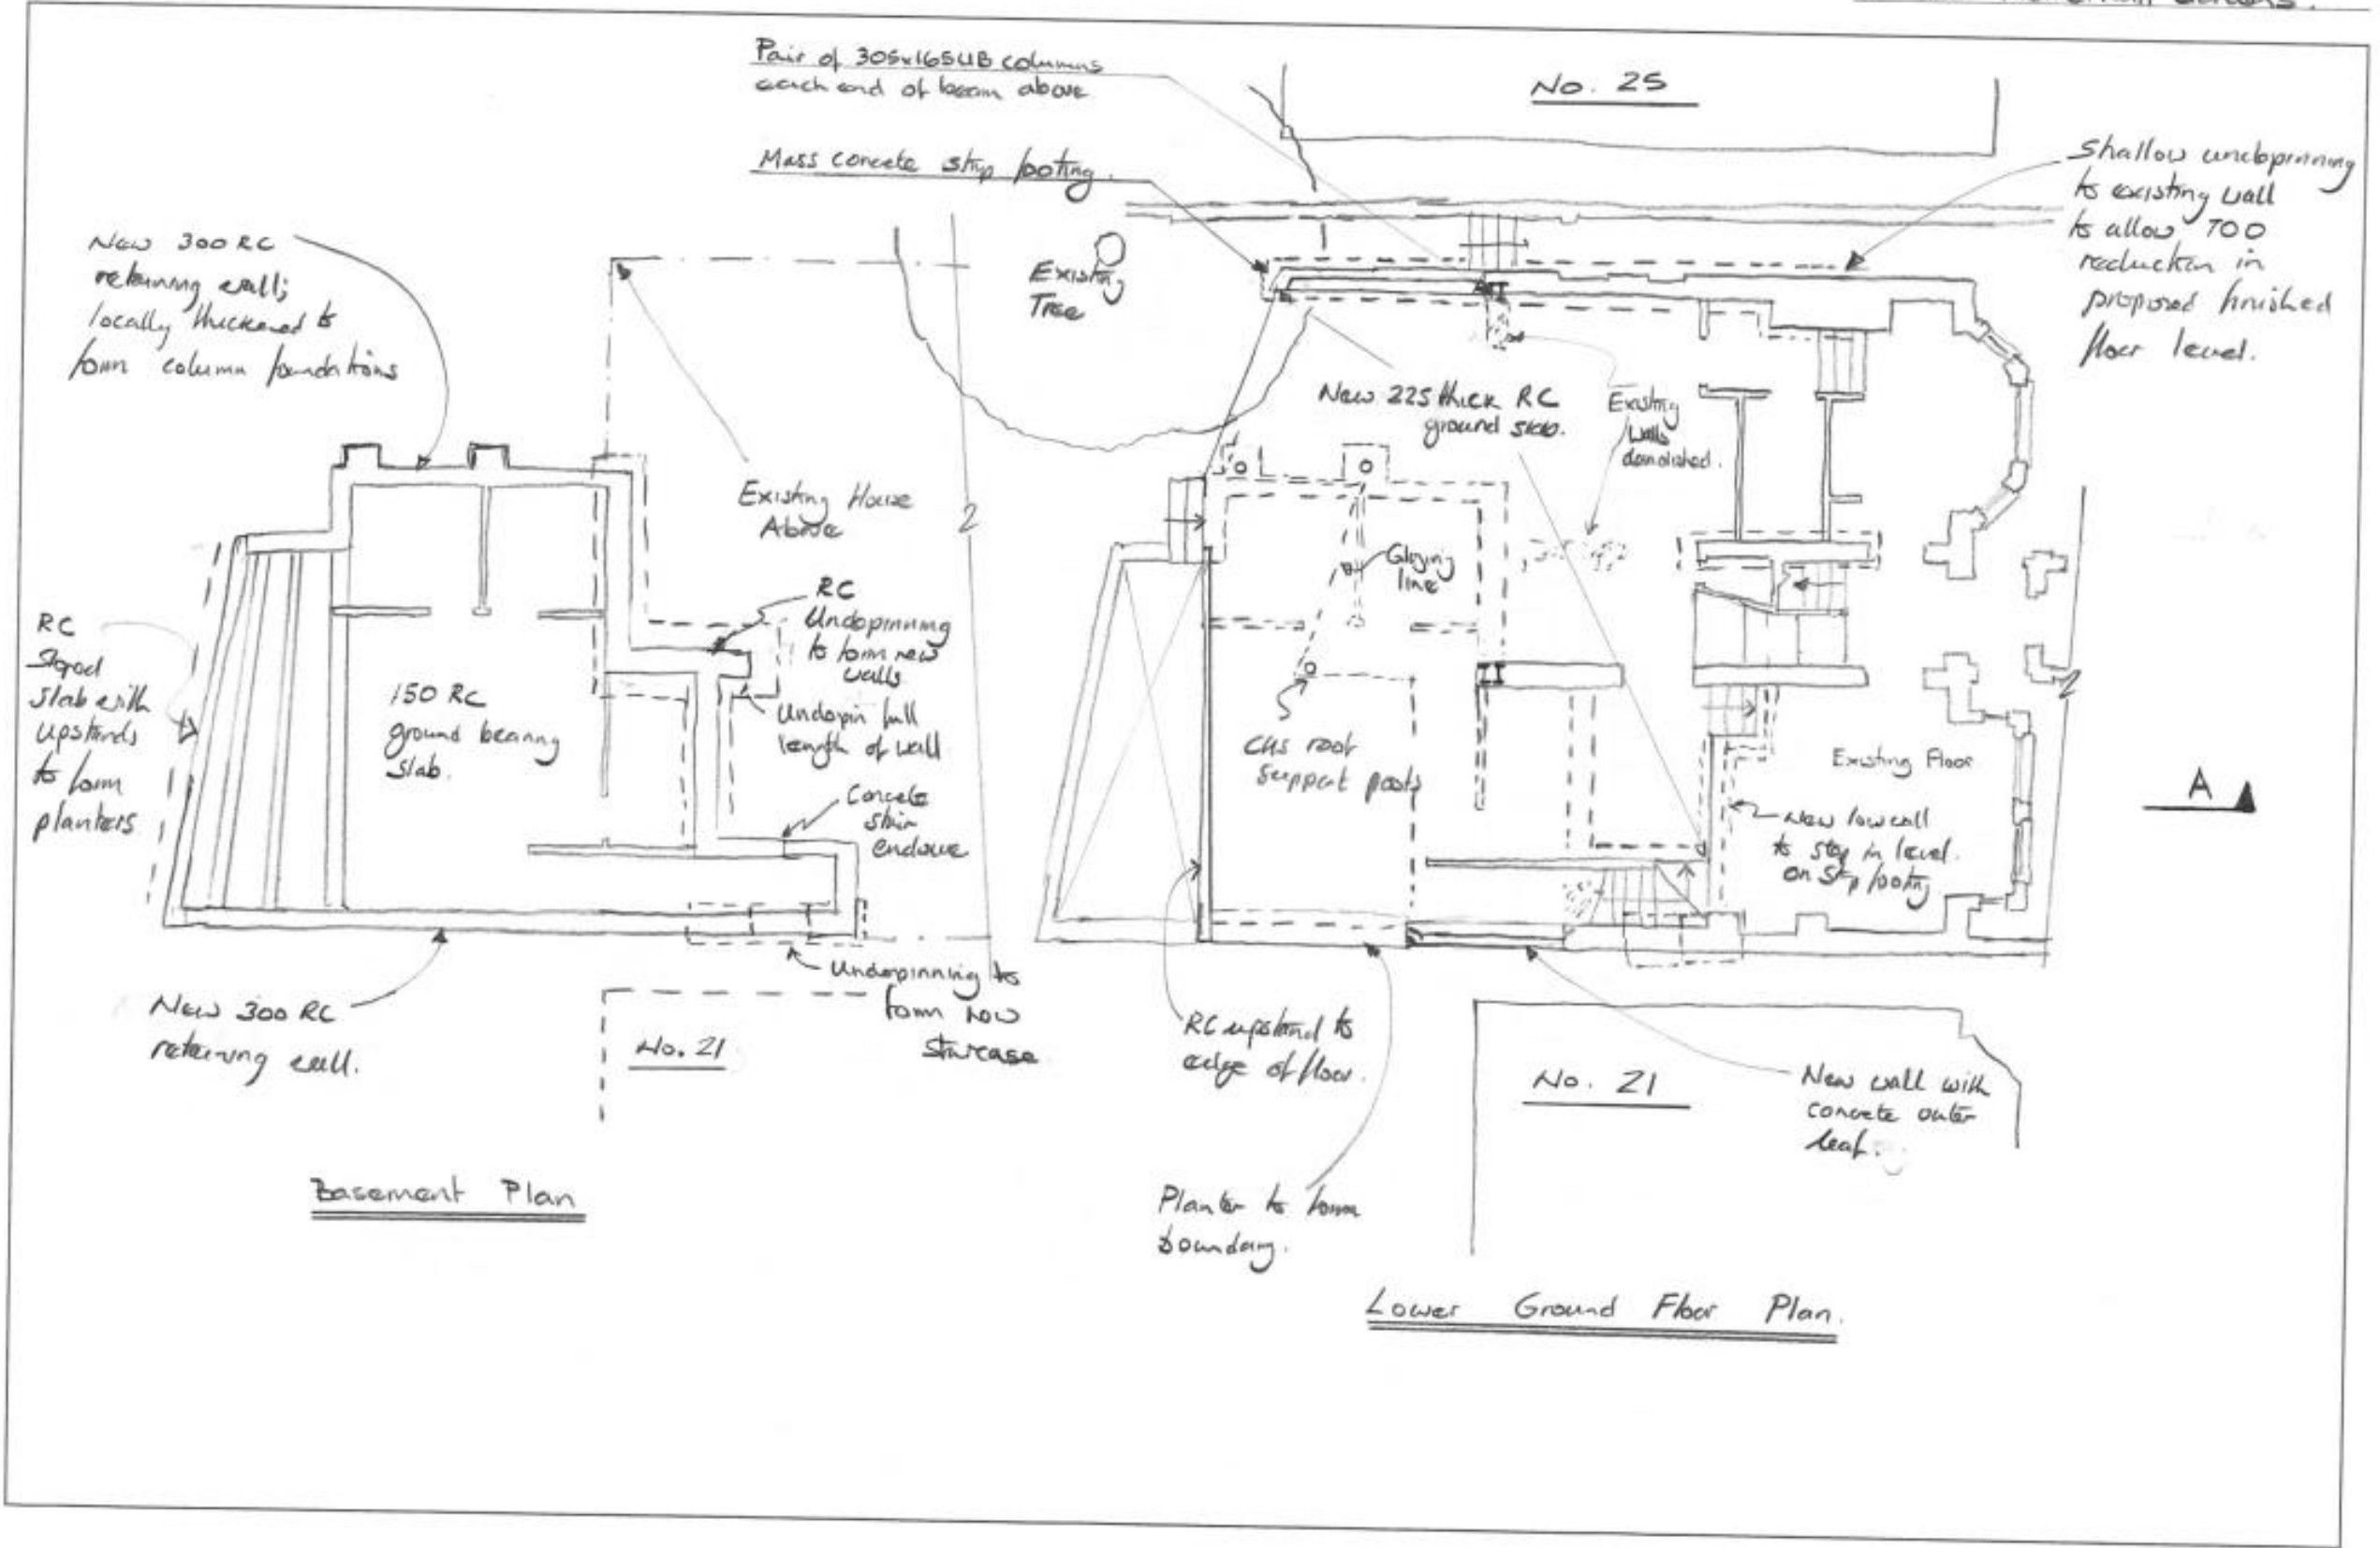 Pair of 305x165UB columns
each end of beam above
No. 25
Mass concrete strip footing.
Shallow underpinning
to existing wall
to allow 700
reduction in
proposed finished
floor level.
New 300 RC
retaining wall;
locally thickened to
form column foundations
Existing
Tree
New 225 thick RC
ground slab.
Existing
walls
demolished.
Existing House
Above
2
Glazing
line
RC
Underpinning
to form new
walls
RC
sloped
slab with
upstands
to form
planters
150 RC
ground bearing
slab.
Underpin full
length of wall
CHS roof
support posts
2
Existing Floor
A
Concrete
stair
enclosure
New low wall
to step in level.
on strip footing
Underpinning to
form new
staircase
New 300 RC
retaining wall.
No. 21
RC upstand to
edge of floor.
No. 21
New wall with
concrete outer
leaf.
Planter to form
boundary.
Basement Plan
Lower Ground Floor Plan.